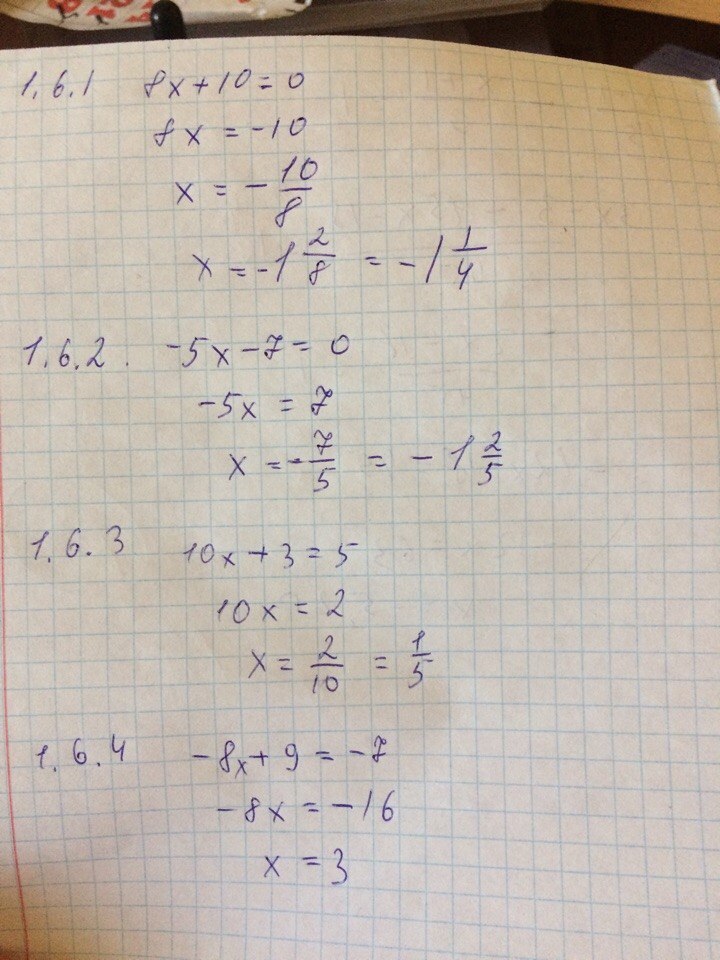 1.6.1 8x+10=0
8x = -10
x = -10/8
x = -1 2/8 = -1 1/4
1.6.2. -5x-7=0
-5x = 7
x = -7/5 = -1 2/5
1.6.3 10x+3=5
10x = 2
x = 2/10 = 1/5
1.6.4 -8x+9=-7
-8x = -16
x = 3